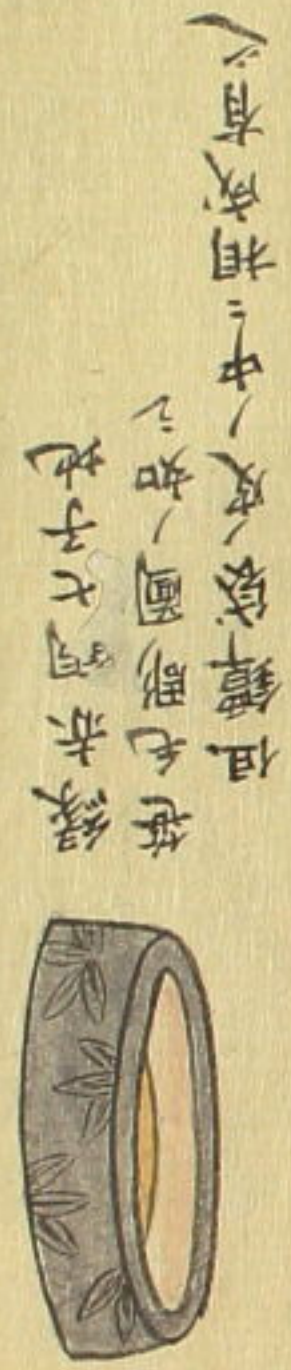 縁赤銅七子地
笹毛彫圖ノ如シ
但鐔袋ノ皮ノ中ニ相成有之